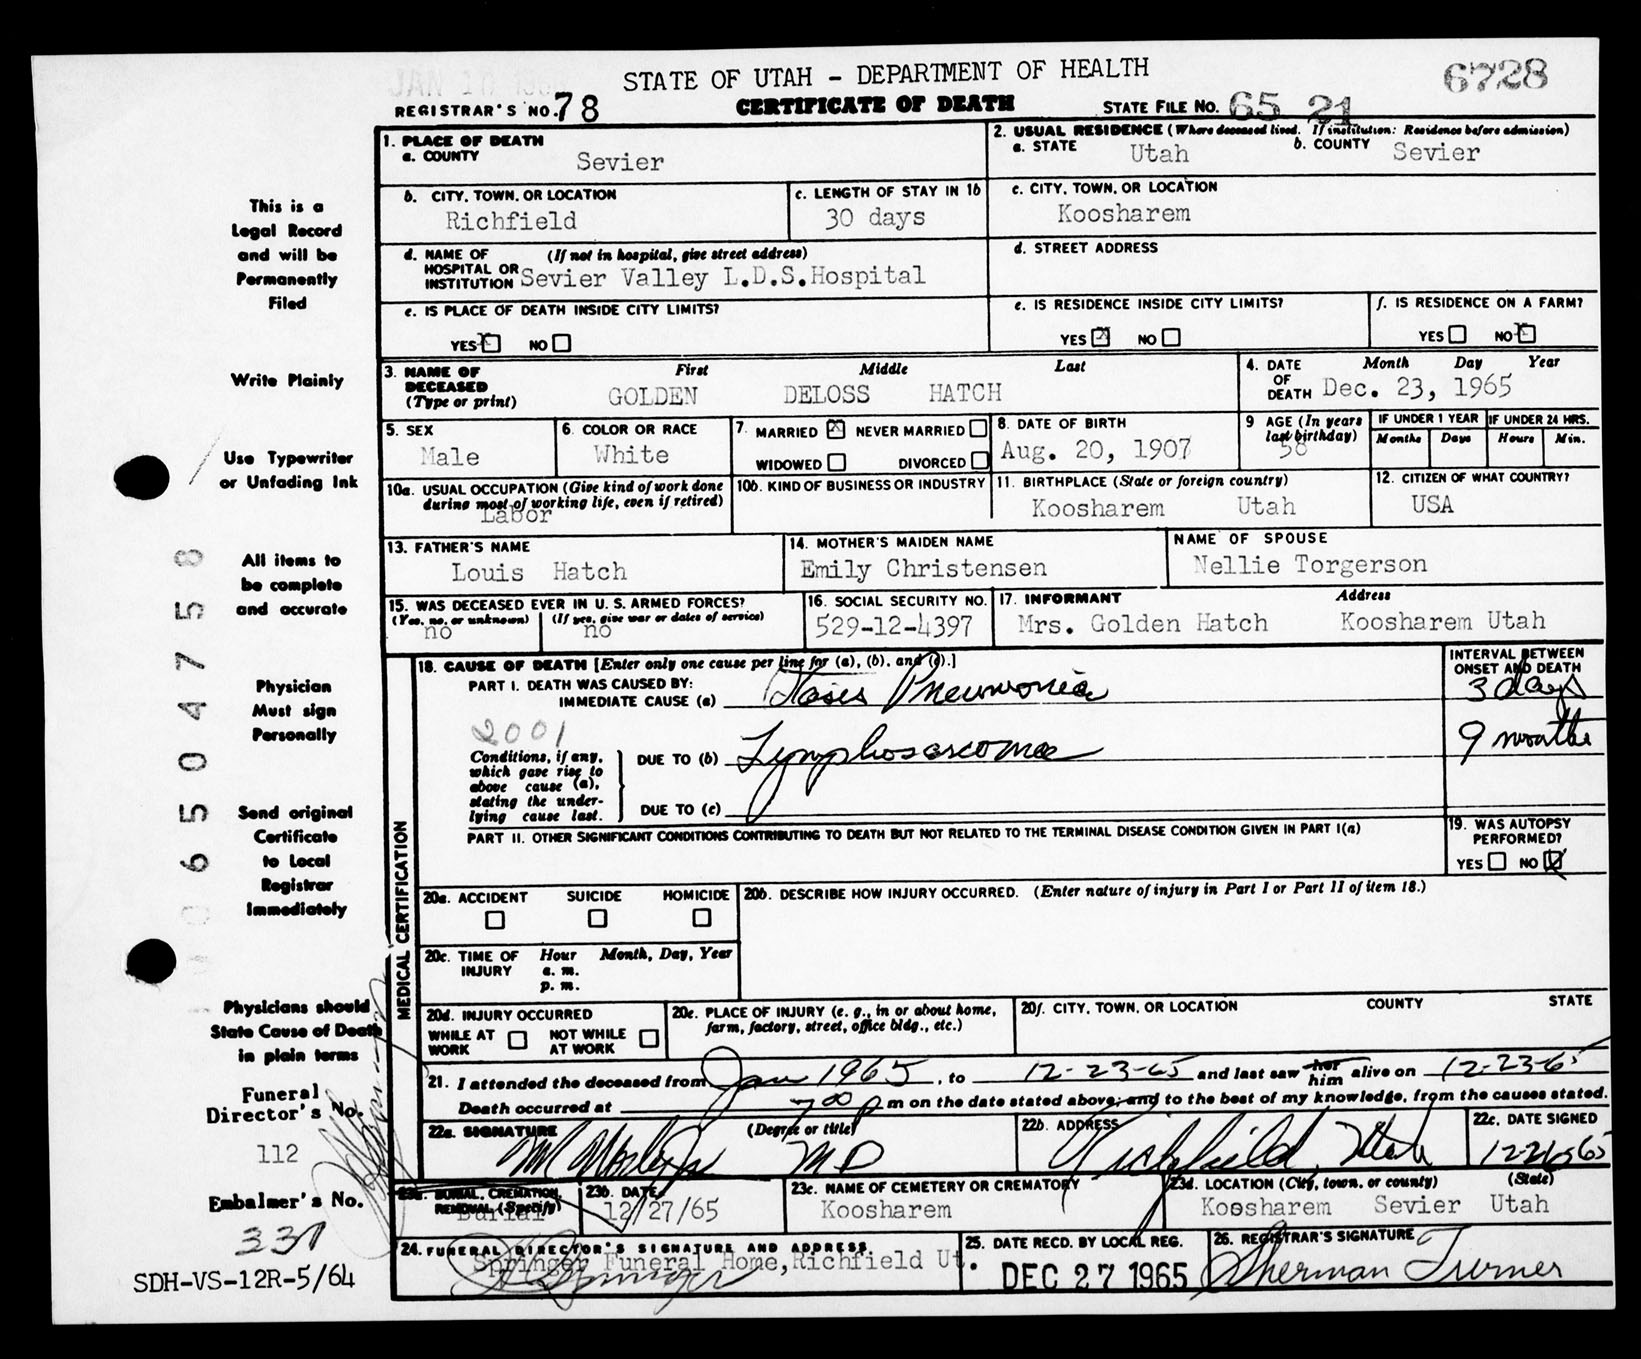 JAN 10 196
STATE OF UTAH - DEPARTMENT OF HEALTH
6728
REGISTRAR'S NO. 78
CERTIFICATE OF DEATH
STATE FILE NO. 65 21
This is a
Legal Record
and will be
Permanently
Filed
Write Plainly
Use Typewriter
or Unfading Ink
All items to
be complete
and accurate
Physician
Must sign
Personally
Send original
Certificate
to Local
Registrar
Immediately
Physicians should
State Cause of Death
in plain terms
Funeral
Director's No.
112
Embalmer's No.
331
SDH-VS-12R-5/64
06504758
1. PLACE OF DEATH
a. COUNTY
Sevier
2. USUAL RESIDENCE (Where deceased lived. If institution: Residence before admission)
a. STATE Utah b. COUNTY Sevier
b. CITY, TOWN, OR LOCATION
Richfield
c. LENGTH OF STAY IN 1b
30 days
c. CITY, TOWN, OR LOCATION
Koosharem
d. NAME OF (If not in hospital, give street address)
HOSPITAL OR
INSTITUTION Sevier Valley L.D.S.Hospital
d. STREET ADDRESS
e. IS PLACE OF DEATH INSIDE CITY LIMITS?
YES X NO
e. IS RESIDENCE INSIDE CITY LIMITS?
YES X NO
f. IS RESIDENCE ON A FARM?
YES NO X
3. NAME OF DECEASED
(Type or print)
First Middle Last
GOLDEN DELOSS HATCH
4. DATE OF DEATH
Month Day Year
Dec. 23, 1965
5. SEX
Male
6. COLOR OR RACE
White
7. MARRIED X NEVER MARRIED
WIDOWED DIVORCED
8. DATE OF BIRTH
Aug. 20, 1907
9 AGE (In years last birthday)
58
IF UNDER 1 YEAR
Months Days
IF UNDER 24 HRS.
Hours Min.
10a. USUAL OCCUPATION (Give kind of work done
during most of working life, even if retired)
Labor
10b. KIND OF BUSINESS OR INDUSTRY
11. BIRTHPLACE (State or foreign country)
Koosharem Utah
12. CITIZEN OF WHAT COUNTRY?
USA
13. FATHER'S NAME
Louis Hatch
14. MOTHER'S MAIDEN NAME
Emily Christensen
NAME OF SPOUSE
Nellie Torgerson
15. WAS DECEASED EVER IN U. S. ARMED FORCES?
(Yes, no, or unknown) (If yes, give war or dates of service)
no no
16. SOCIAL SECURITY NO.
529-12-4397
17. INFORMANT Address
Mrs. Golden Hatch Koosharem Utah
MEDICAL CERTIFICATION
18. CAUSE OF DEATH [Enter only one cause per line for (a), (b), and (c).]
PART I. DEATH WAS CAUSED BY:
IMMEDIATE CAUSE (a) Stasis Pneumonia
INTERVAL BETWEEN
ONSET AND DEATH
3 days
2001
Conditions, if any,
which gave rise to
above cause (a),
stating the under-
lying cause last.
DUE TO (b) Lymphosarcoma
9 months
DUE TO (c)
PART II. OTHER SIGNIFICANT CONDITIONS CONTRIBUTING TO DEATH BUT NOT RELATED TO THE TERMINAL DISEASE CONDITION GIVEN IN PART I(a)
19. WAS AUTOPSY
PERFORMED?
YES NO X
20a. ACCIDENT SUICIDE HOMICIDE
20b. DESCRIBE HOW INJURY OCCURRED. (Enter nature of injury in Part I or Part II of item 18.)
20c. TIME OF INJURY
Hour Month, Day, Year
a. m.
p. m.
20d. INJURY OCCURRED
WHILE AT WORK NOT WHILE AT WORK
20e. PLACE OF INJURY (e. g., in or about home,
farm, factory, street, office bldg., etc.)
20f. CITY, TOWN, OR LOCATION COUNTY STATE
21. I attended the deceased from Jan 1965, to 12-23-65 and last saw her him alive on 12-23-65
Death occurred at 7 00 p m on the date stated above; and to the best of my knowledge, from the causes stated.
22a. SIGNATURE (Degree or title)
MD
22b. ADDRESS
Richfield, Utah
22c. DATE SIGNED
23a. BURIAL, CREMATION,
REMOVAL (Specify)
Burial
23b. DATE
12/27/65
23c. NAME OF CEMETERY OR CREMATORY
Koosharem
23d. LOCATION (City, town, or county) (State)
Koosharem Sevier Utah
24. FUNERAL DIRECTOR'S SIGNATURE AND ADDRESS
Springer Funeral Home, Richfield Ut.
25. DATE RECD. BY LOCAL REG.
DEC 27 1965
26. REGISTRAR'S SIGNATURE
Sherman Turner